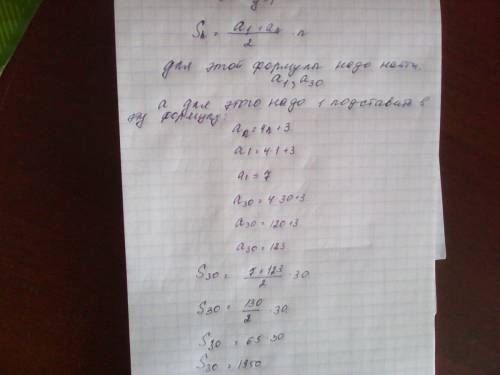 Sn = (a1 + an)/2 · n
для этой формулы надо найти:
a1, a30
а для этого надо 1 подставить в
эту формулу:
an = 4n+3
a1 = 4·1+3
a1 = 7
a30 = 4·30+3
a30 = 120+3
a30 = 123
S30 = (7+123)/2 · 30
S30 = 130/2 · 30
S30 = 65·30
S30 = 1950